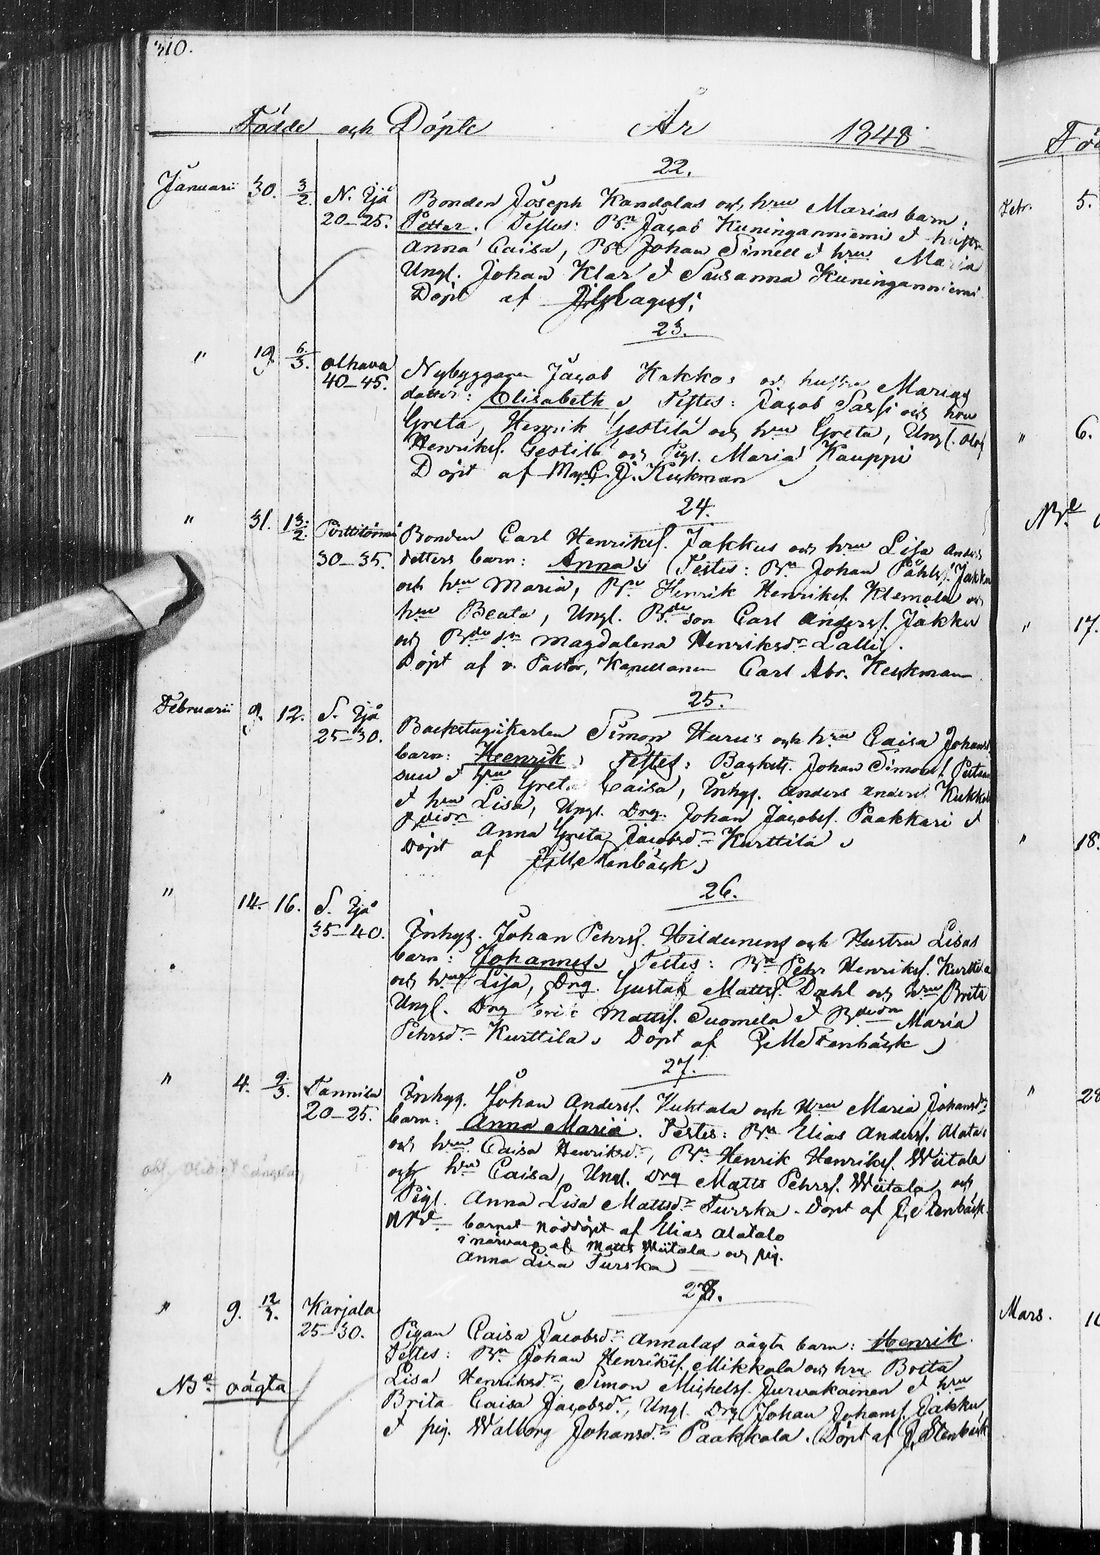 310.
Födde och Döpte År 1848
22.
Januarii 30. 3/2. N. Ijå Bonden Joseph Kandolas och hrus Marias barn:
20–25. Petter. Testes: Bn Jacob Kuninganniemi &
Anna Caisa, Bn Johan Simell & hru Maria
Ungl. Johan Klar & Susanna Kuninganniemi
Döpt af
23.
" 19. 6/3. Olhava Nybyggaren Jacob Kakkos och hustru Marias
40–45. dotter: Elisabeth, Testes: Jacob Sassi och hru
Greta, Henrik Gestilä och hru Greta, Ungl. Olof
Henrikss. Gestilä och Pigl. Maria Kauppi
Döpt af Mag. C. J. Keckman
24.
" 31. 13/2. Bonden Carl Henrikss. Jakkus och hru Lisa Anders
30–35. dotters barn: Anna, Testes: Bn Johan Påhlss. Jakku
och hru Maria, Bn Henrik Henrikss. Klemola och
hru Beata, Ungl. Bde son Carl Anderss. Jakku
och Bde dr Magdalena Henriksdr Lalli.
Döpt af v. Pastor, Kapellanen Carl Abr. Keckman
25.
Februarii 9. 12. S. Ijå Backstugukarlen Simon Hurus och hru Caisa Johans
25–30. barn: Henrik, Testes: Backst. Johan Simonss.
& hru Greta Caisa, Inhyg. Anders Anderss. Kukkola
& hru Lisa, Ungl. Drg. Johan Jacobss. Paakkari &
Anna Greta Jacobsdr Kurttila,
Döpt af Stenbäck
26.
" 14. 16. S. Ijå Inhyg. Johan Pehrss. Hildunens och Hustru Lisas
35–40. barn: Johannes, Testes: Bn Pehr Henrikss. Kurttila
och hru Lisa, Drg. Gustaf Mattss. Dahl och hru Brita
Ungl. Drg Eric Mattss. Suomela & Bdedr Maria
Pehrsdr Kurttila, Döpt af Stenbäck
27.
" 4. 9/3. Tannila Inhyg. Johan Anderss. Kuktala och Hru Maria Johansdr
20–25. barn: Anna Maria. Testes: Bn Elias Anderss. Alatalo
och hru Caisa Henriksdr, Bn Henrik Henrikss. Wiitala
och hru Caisa, Ungl. Drg Matts Pehrss. Wiitala och
Pigl. Anna Lisa Mattsdr Turska. Döpt af Stenbäck
NB: barnet nöddöpt af Elias Alatalo
i närvaro af Matts Wiitala och pig.
Anna Lisa Turska
28.
" 9. 12/3. Karjala Pigan Caisa Jacobsdr Annalas oägta barn: Henrik.
25–30. Testes: Bn Johan Henrikss. Mikkola och hru Brita
Lisa Henriksdr, Simon Michelss. Jurvakainen & hru
NB oägta Brita Caisa Jacobsdr, Ungl. Drg Johan Johanss. Jakku
& pig. Walborg Johansdr Paakkola. Döpt af J. Stenbäck
Febr. 5.
" 6.
NB
" 17.
" 18.
" 28
Mars.